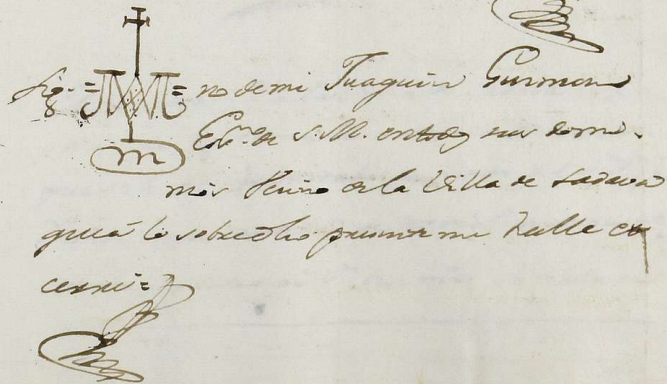 Sig= =no de mi Juaquin Gurmen
m
Esno de S. M. en todos sus domi-
nios Vecino de la Villa de Sadava
que á lo sobredho presente me halle et
cerre=